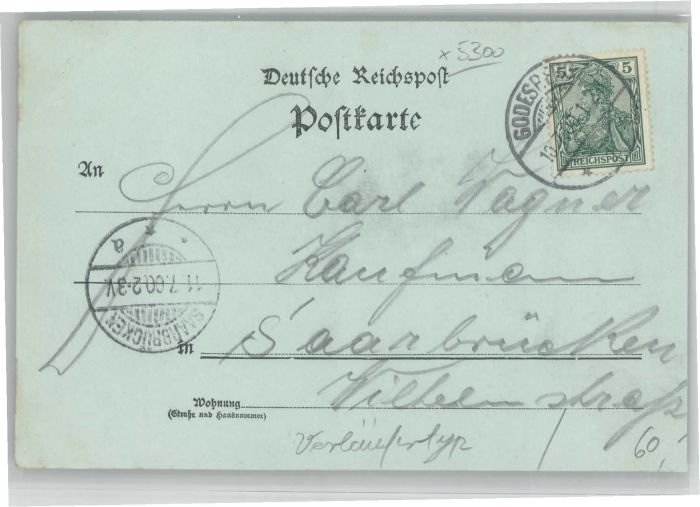 x 5300
Deutsche Reichspost
Postkarte
GODESB
5 5
REICHSPOST
An
Herrn Carl Wagner
Kaufmann
in Saarbrücken
Wilhelmstraße
Wohnung
(Straße und Hausnummer)
SAARBRÜCKEN
11.7.00.2-3V.
a
Verläufertyp
60,